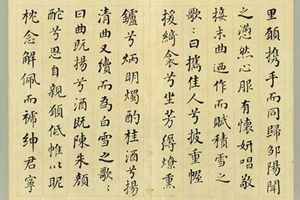 里願攜手而同歸鄒陽聞
之懣然心服有懷妍唱敬
接末曲迺作而賦積雪之
歌：曰攜佳人兮披重幄
援綺衾兮坐芳縟燎薰
鑪兮炳明燭酌桂酒兮揚
清曲又續而為白雪之歌：
曰曲既揚兮酒既陳朱顏
酡兮思自親願低帷以昵
枕念解佩而褫紳君寧